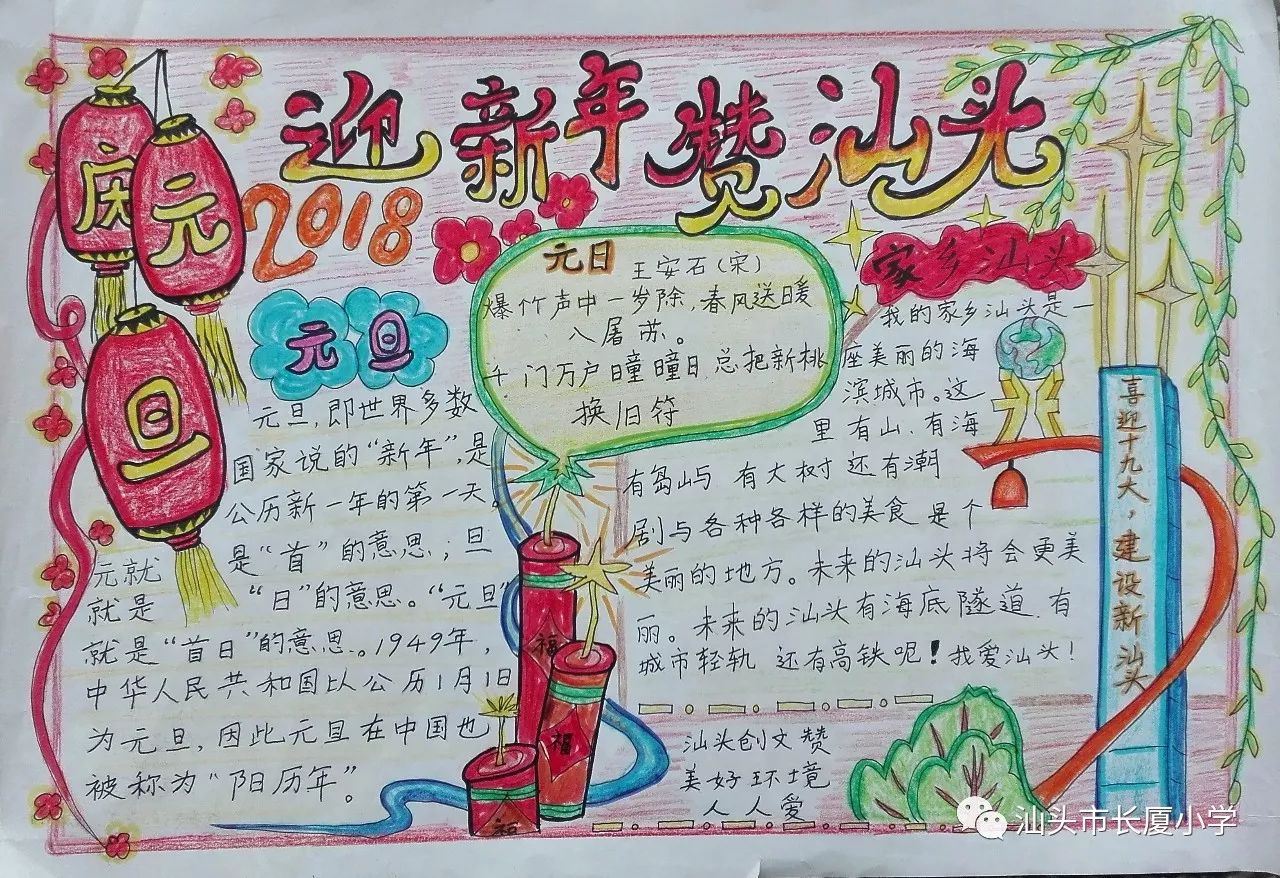 迎新年赞汕头
庆
元
旦
2018
元旦
元旦,即世界多数
国家说的“新年”,是
公历新一年的第一天。
元就 是“首”的意思;旦
就是 “日”的意思。“元旦”
就是“首日”的意思。1949年,
中华人民共和国以公历1月1日
为元旦,因此元旦在中国也
被称为“阳历年”。
元日 王安石(宋)
爆竹声中一岁除,春风送暖
入屠苏。
千门万户瞳瞳日,总把新桃
换旧符
家乡汕头
我的家乡汕头是一
座美丽的海
滨城市。这
里有山、有海
有岛屿 有大树还有潮
剧与各种各样的美食 是个
美丽的地方。未来的汕头将会更美
丽。未来的汕头有海底隧道、有
城市轻轨 还有高铁呢!我爱汕头!
喜迎十九大,建设新汕头
福
福
福
汕头创文赞
美好环境
人人爱
汕头市长厦小学